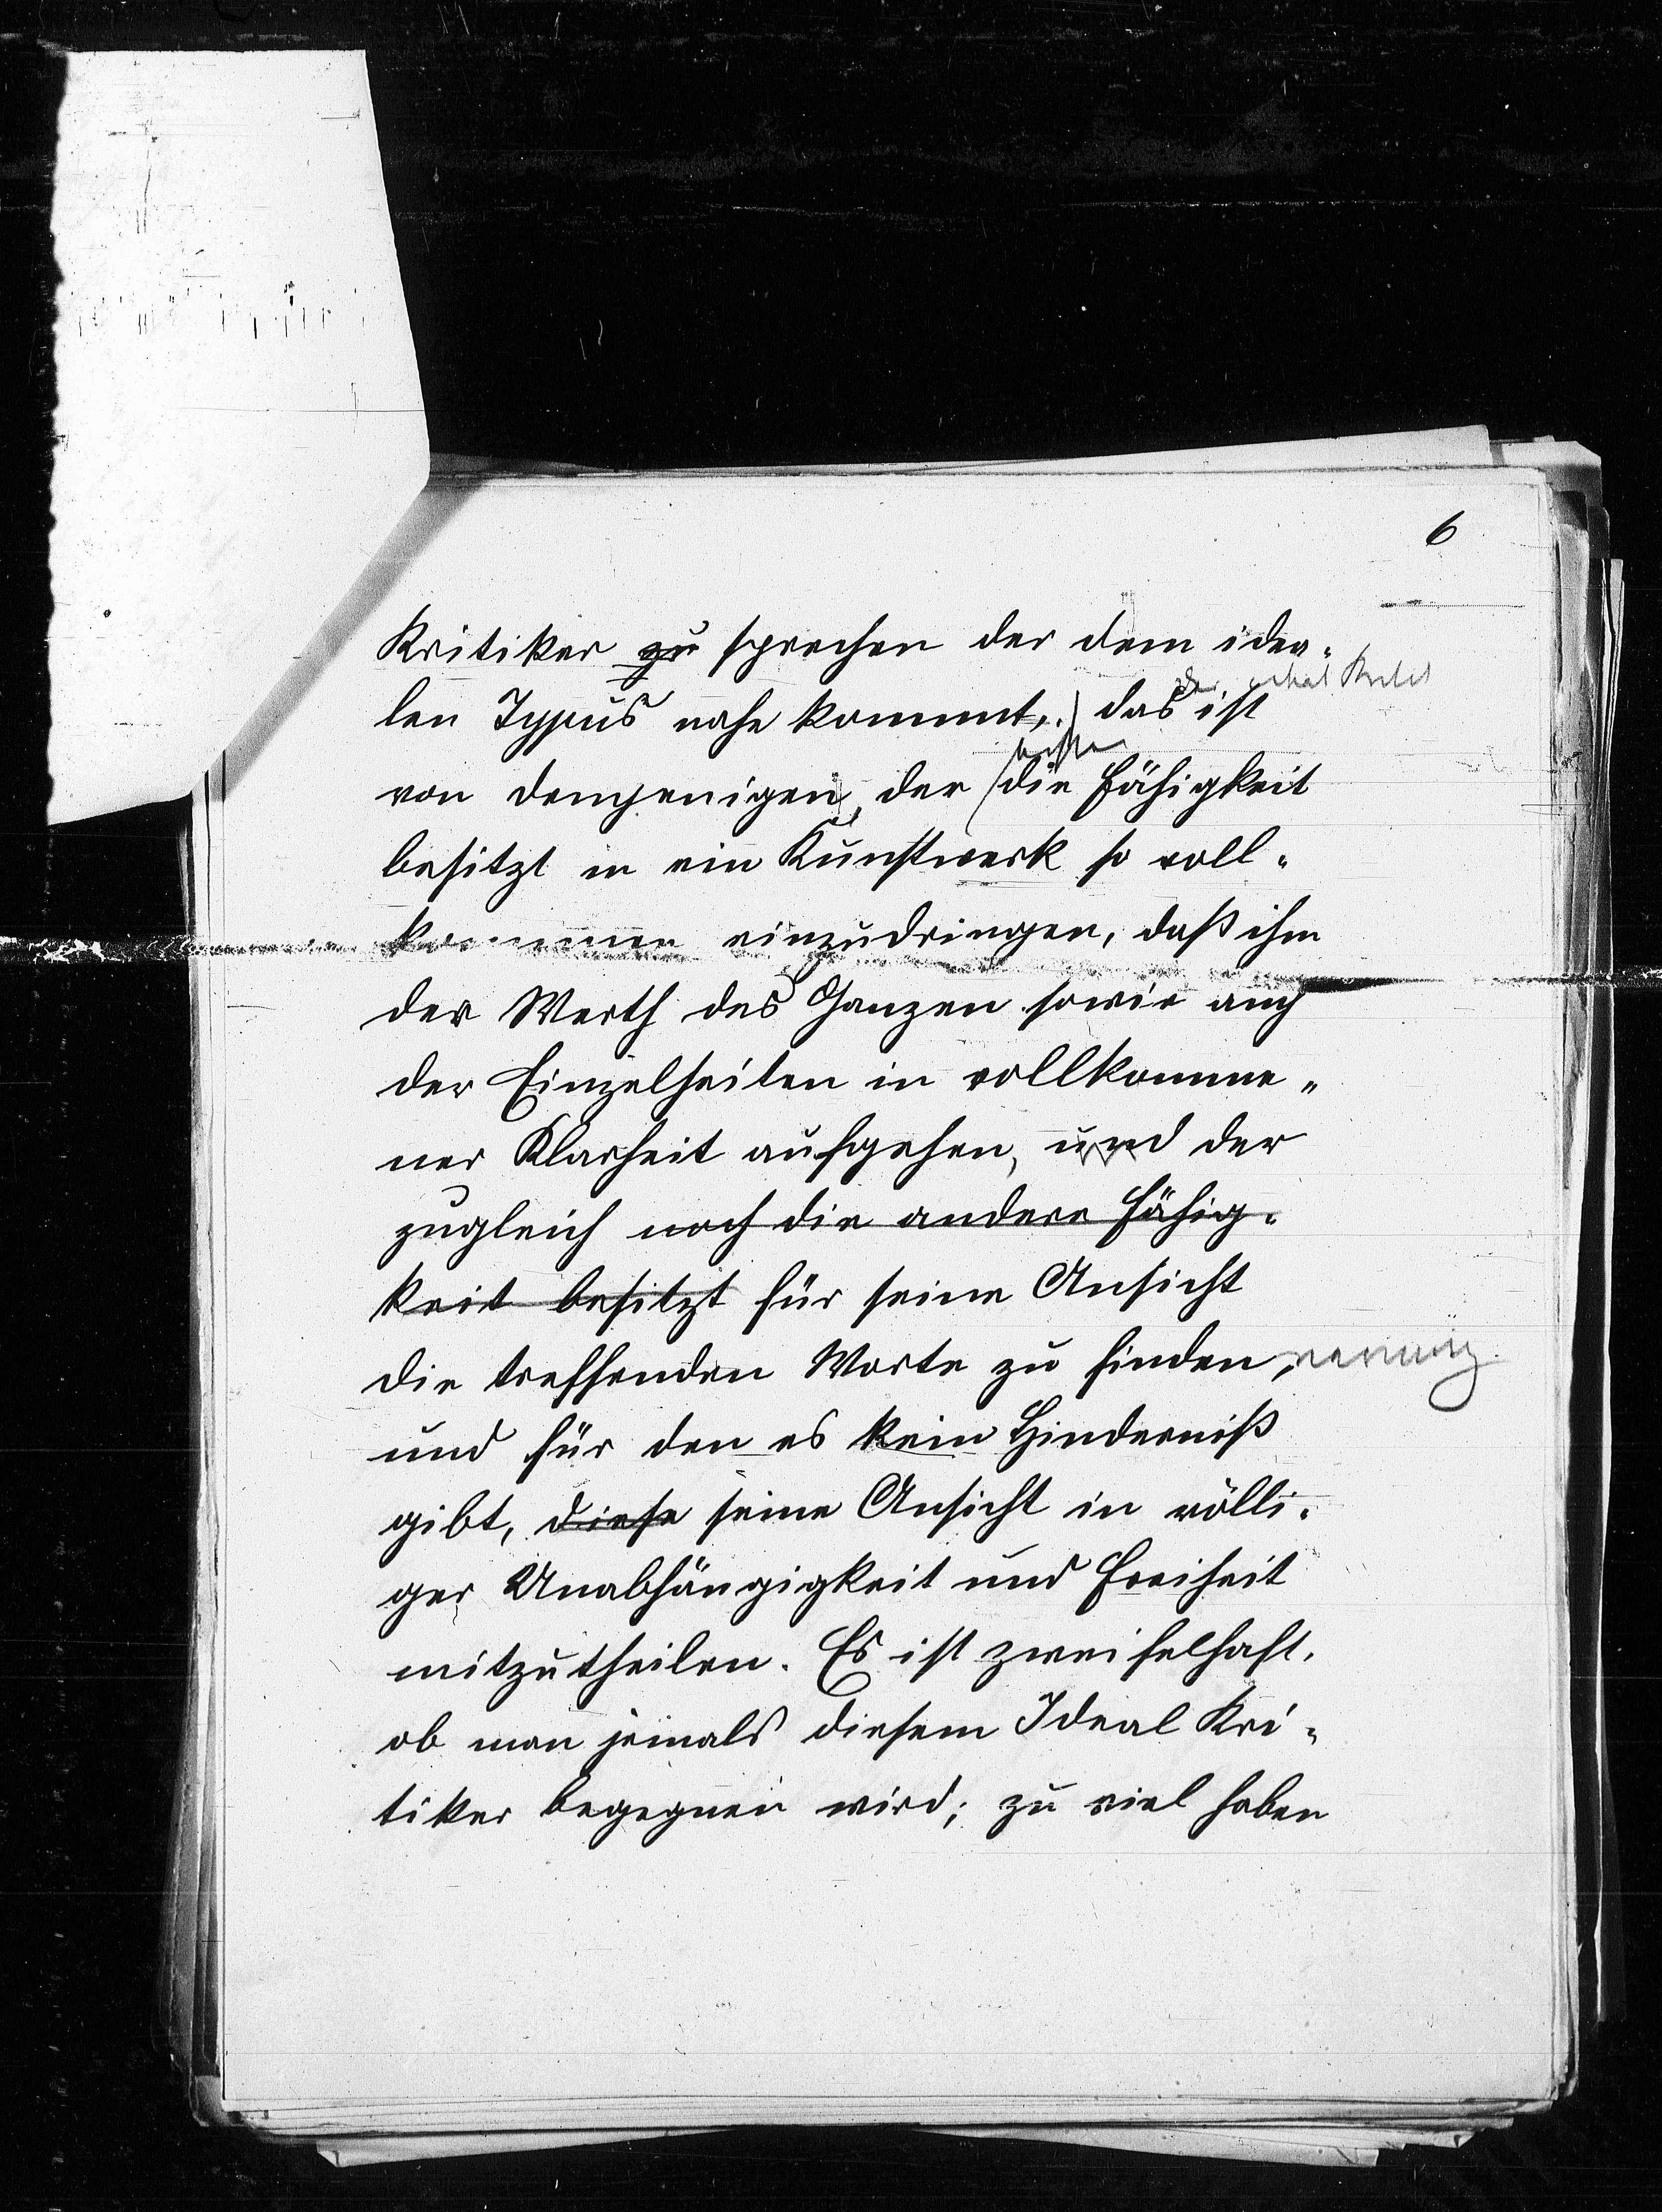 6
Kritiker zu sprechen der dem idea-
len Typus nahe kommt, das ist
von demjenigen, der die Fähigkeit
besitzt in ein Kunstwerk so voll-
kommen einzudringen, daß ihm
der Werth des Ganzen sowie auch
der Einzelheiten in vollkomme-
ner Klarheit aufgehen, und der
zugleich noch die andere Fähig-
keit besitzt für seine Ansicht
die treffenden Worte zu finden,
und für den es kein Hinderniß
gibt, diese seine Ansicht in völli-
ger Unabhängigkeit und Freiheit
mitzutheilen. Es ist zweifelhaft,
ob man jemals diesem Ideal Kri-
tiker begegnen wird; zu viel haben